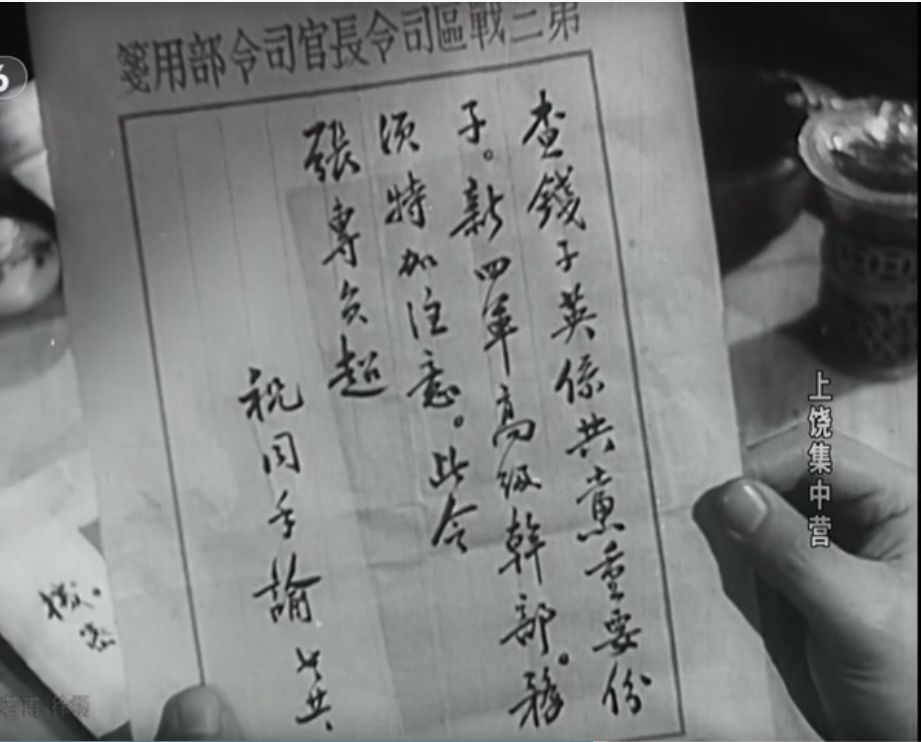 第三戰區司令長官司令部用箋
查錢子英係共黨重要份
子。新四軍高级幹部。務
須特加注意。此令
張專員超
祝同手諭
上饶集中营
6